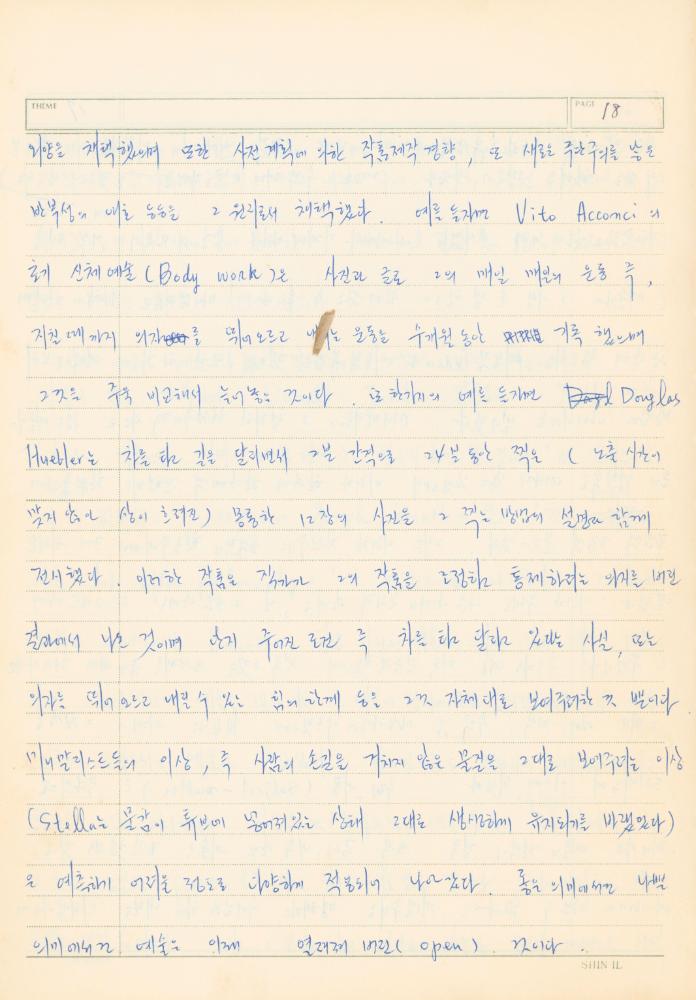 THEME PAGE 18
외양을 채택했으며 또한 사전계획에 의한 작품제작경향, 또 새로운 주관주의를 낳은
반복성의 예술 등등을 그 원리로서 채택했다. 예를 들자면 Vito Acconci의
초기 신체예술(Body work)은 사진과 글로 그의 매일 매일의 운동 즉,
지칠때까지 의자를 뛰어오르고 내리는 운동을 수개월동안 기록했으며
그것을 주욱 비교해서 늘어놓은 것이다. 또 한가지의 예를 들자면 Douglas
Huebler는 차를 타고 길을 달리면서 2분 간격으로 24분 동안 찍은 (노출시간이
맞지 않아 상이 흐려진) 몽롱한 12장의 사진을 그 찍는 방법의 설명과 함께
전시했다. 이러한 작품은 작가가 그의 작품을 조정하고 통제하려는 의지를 버린
결과에서 나온 것이며 단지 주어진 조건 즉 차를 타고 달리고 있다는 사실, 또는
의자를 뛰어오르고 내릴 수 있는 힘의 한계 등을 그것 자체대로 보여주려한 것 뿐이다
미니말리스트들의 이상, 즉 사람의 손길을 거치지 않은 물질을 그대로 보여주려는 이상
(Stella는 물감이 튜브에 넣어져있는 상태 그대로 생생하게 유지되기를 바랬었다)
은 예측하기 어려울 정도로 다양하게 적용되어 나아갔다. 좋은 의미에서건 나쁜
의미에서건 예술은 이제 열려져 버린(open). 것이다.
SHIN IL